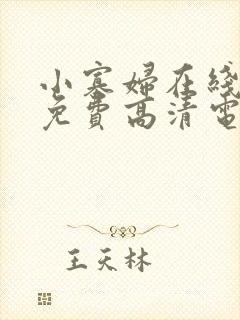 小寡婦在綫
免費高清電
王天林